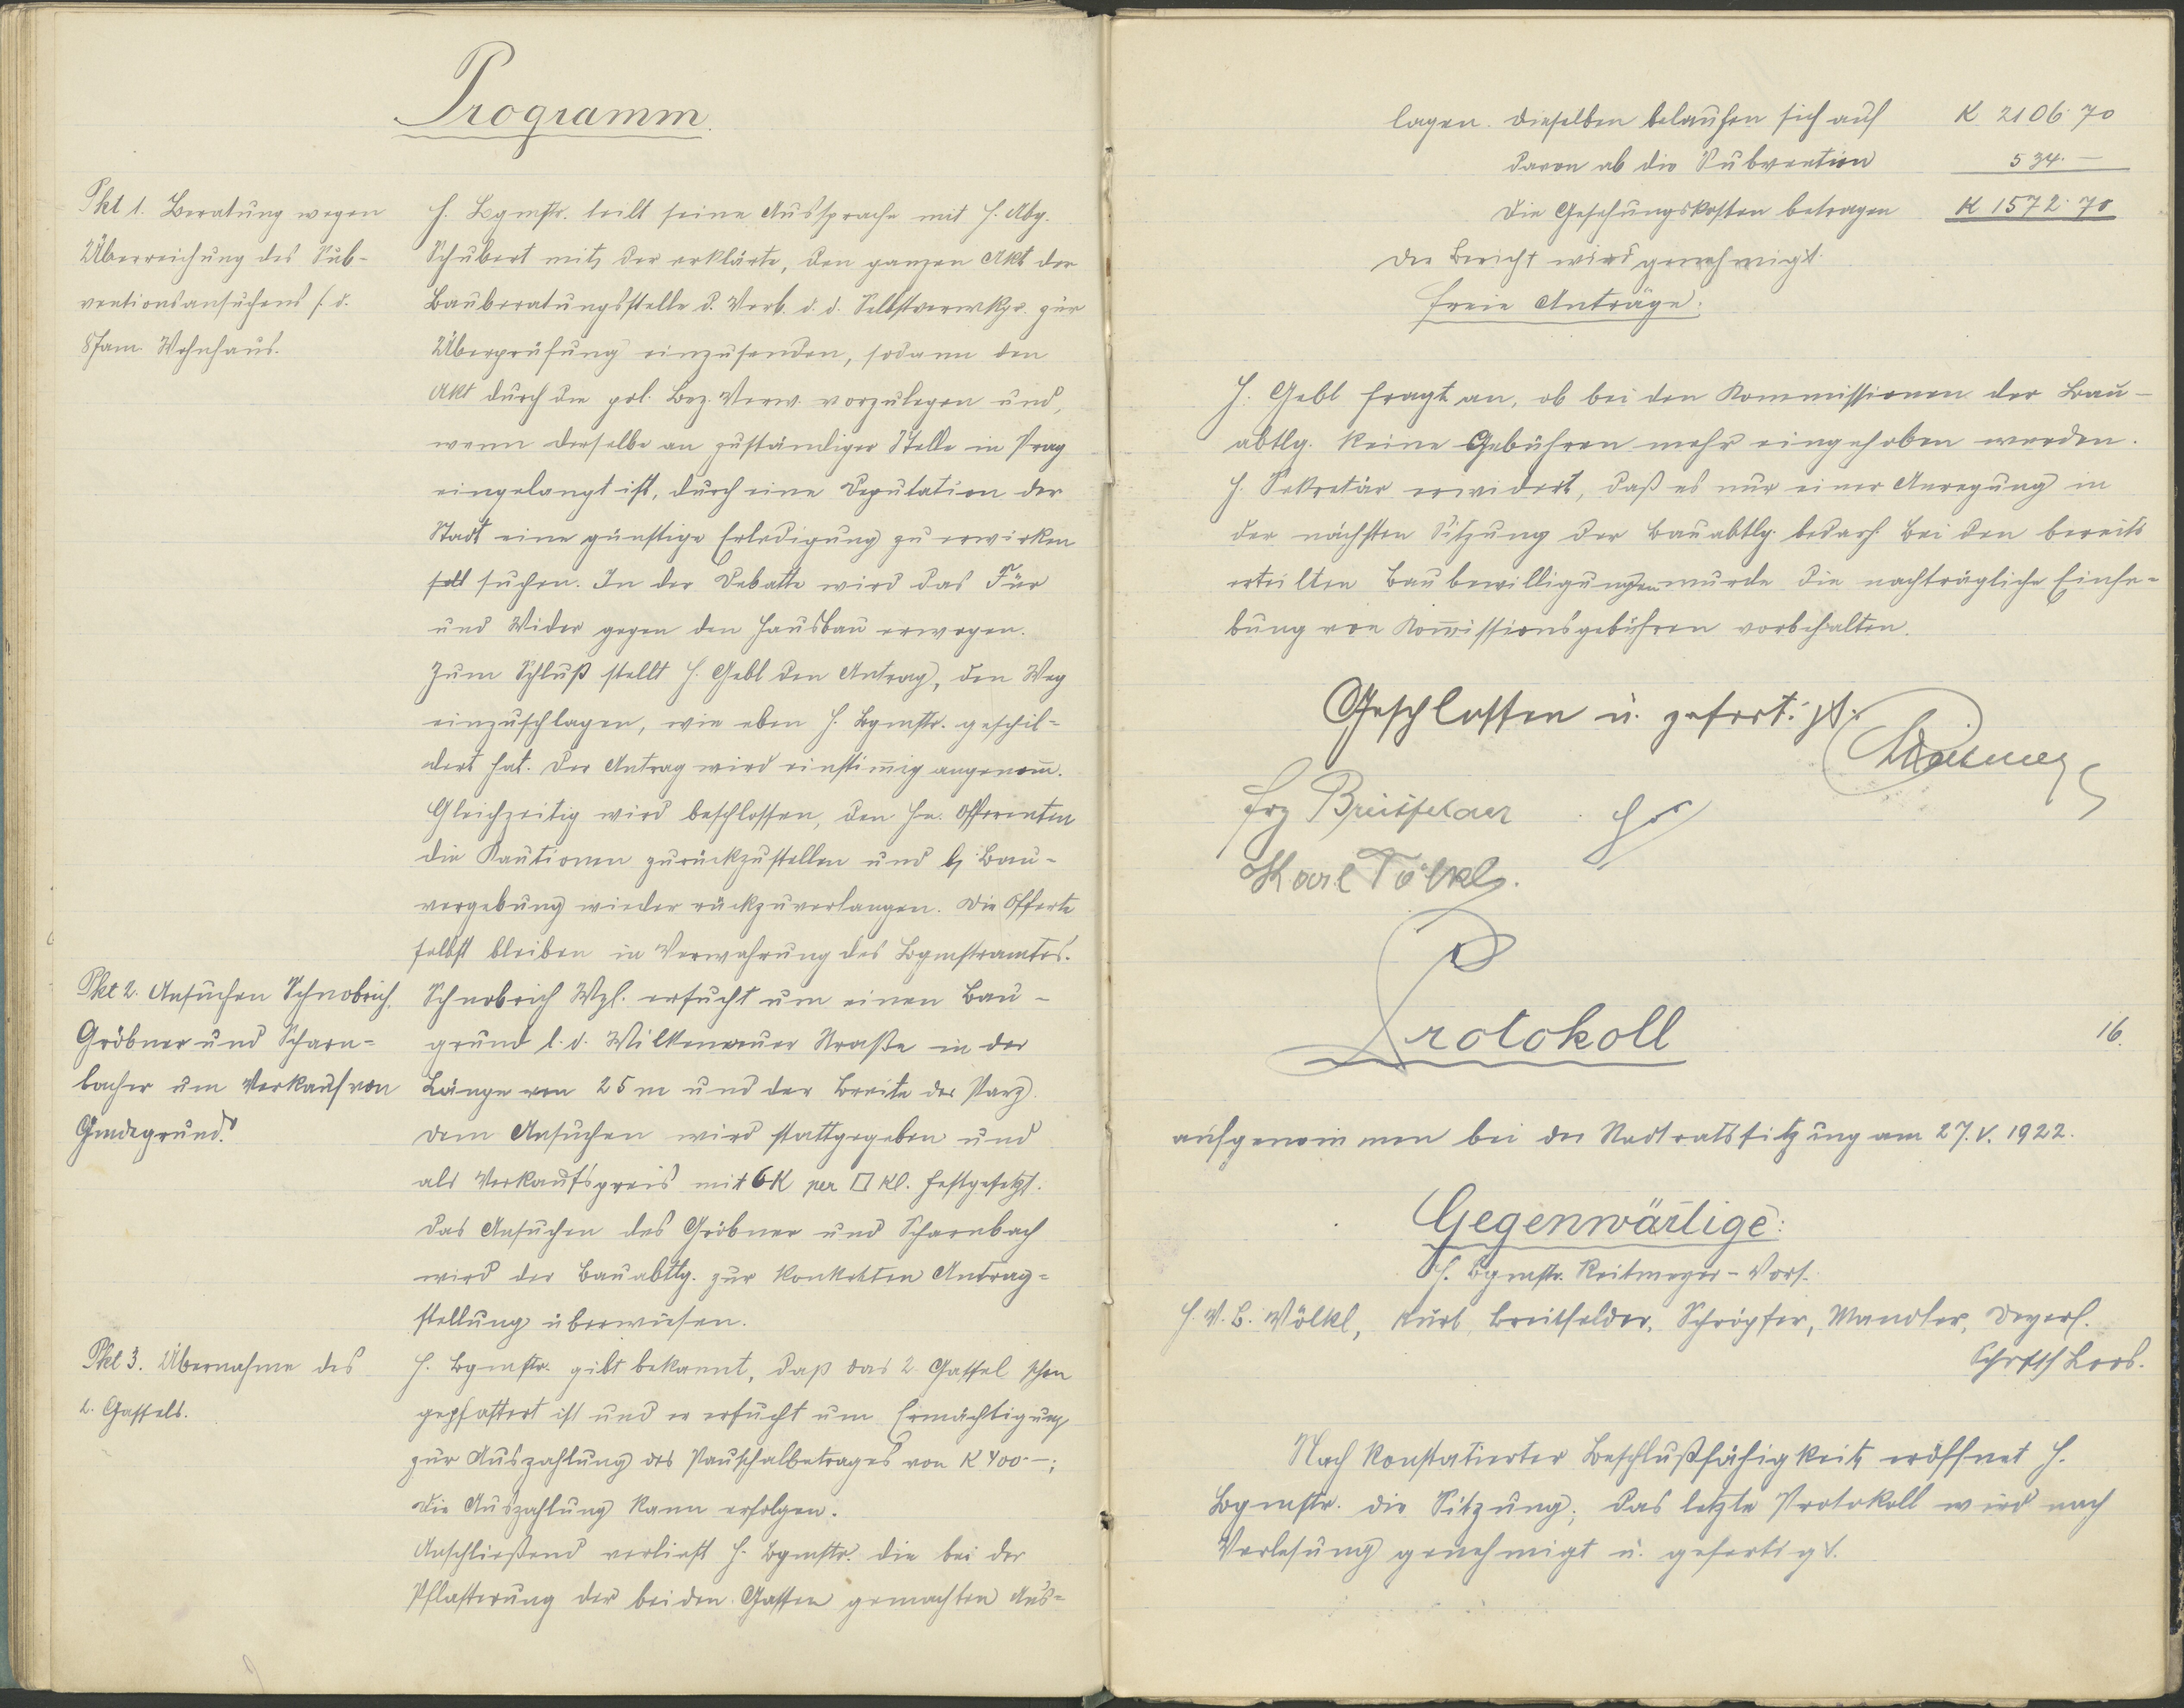 Programm.
Pkt 1. Beratung wegen
Überreichung des Sub-
ventionsansuchens f. d.
8 Fam. Wohnhaus.
H. Bgmstr. teilt seine Aussprache mit H. Abg.
Schubert mit, der erklärte, den ganzen Akt der
Bauberatungsstelle d. Verb. d. d. Selbstverwkpr. zur
Überprüfung einzusenden, sodann den
Akt durch die pol. Bez. Verw. vorzulegen und,
wenn derselbe an zuständiger Stelle in Prag
eingelangt ist, durch eine Deputation der
Stadt eine günstige Erledigung zu erwirken
soll suchen. In der Debatte wird das Für
und Wider gegen den Hausbau erwogen.
Zum Schluß stellt H. Gebl den Antrag, den Weg
einzuschlagen, wie eben H. Bgmstr. geschil-
dert hat. Der Antrag wird einstim̄ig angenom̄.
Gleichzeitig wird beschlossen, den Hn. Offerenten
die Kautionen zurückzustellen und b. Bau-
vergebung wieder rückzuverlangen. Die Offerte
selbst bleiben in Verwahrung des Bgmstramtes.
Pkt 2. Ansuchen Schnobrich,
Gröbner und Scharn-
bacher um Verkauf von
Gmdegrund.
Schnobrich Wzl. ersucht um einen Bau-
grund l. d. Wilkenauer Straße in der
Länge von 25 m und der Breite der Parz.
Dem Ansuchen wird stattgegeben und
als Verkaufspreis mit 6K per □ Kl. festgesetzt.
Das Ansuchen des Gröbner und Scharnbach
wird der Bauabtlg. zur konkreten Antrag-
stellung überwiesen.
Pkt 3. Übernahme des
2. Gassels.
H. Bgmstr. gibt bekannt, daß das 2. Gassel schon
gepflastert ist und er ersucht um Ermächtigung
zur Auszahlung des Pauschalbetrages von K 400·–;
die Auszahlung kann erfolgen.
Anschließend verliest H. Bgmstr. die bei der
Pflasterung der beiden Gassen gemachten Aus-
lagen. Dieselben belaufen sich auf K 2106·70
davon ab die Subvention 534·–
Die Gestehungskosten betragen K 1572·70
Der Bericht wird genehmigt.
Freie Anträge:
H. Gebl fragt an, ob bei den Kommissionen der Bau-
abtlg. keine Gebühren mehr eingehoben werden.
H. Sekretär erwidert, daß es nur einer Anregung in
der nächsten Sitzung der Bauabtlg. bedarf. Bei den bereits
erteilten Baubewilligungen wurde die nachträgliche Einhe-
bung von Kom̄issionsgebühren vorbehalten.
Geschlossen u. gefertigt.
Frz Breitfelder
Karl Völkl.
Protokoll
16.
aufgenommen bei der Stadtratssitzung am 27.V. 1922.
Gegenwärtige:
H. Bgmstr. Reitmeyer – Vors.
H. V. B. Völkl, Kurb, Breitfelder, Schröpfer, Mandler, Deyerl.
Schrftf Loos.
Nach konstatierter Beschlußfähigkeit, eröffnet H.
Bgmstr. die Sitzung; das letzte Protokoll wird nach
Verlesung genehmigt u. gefertigt.